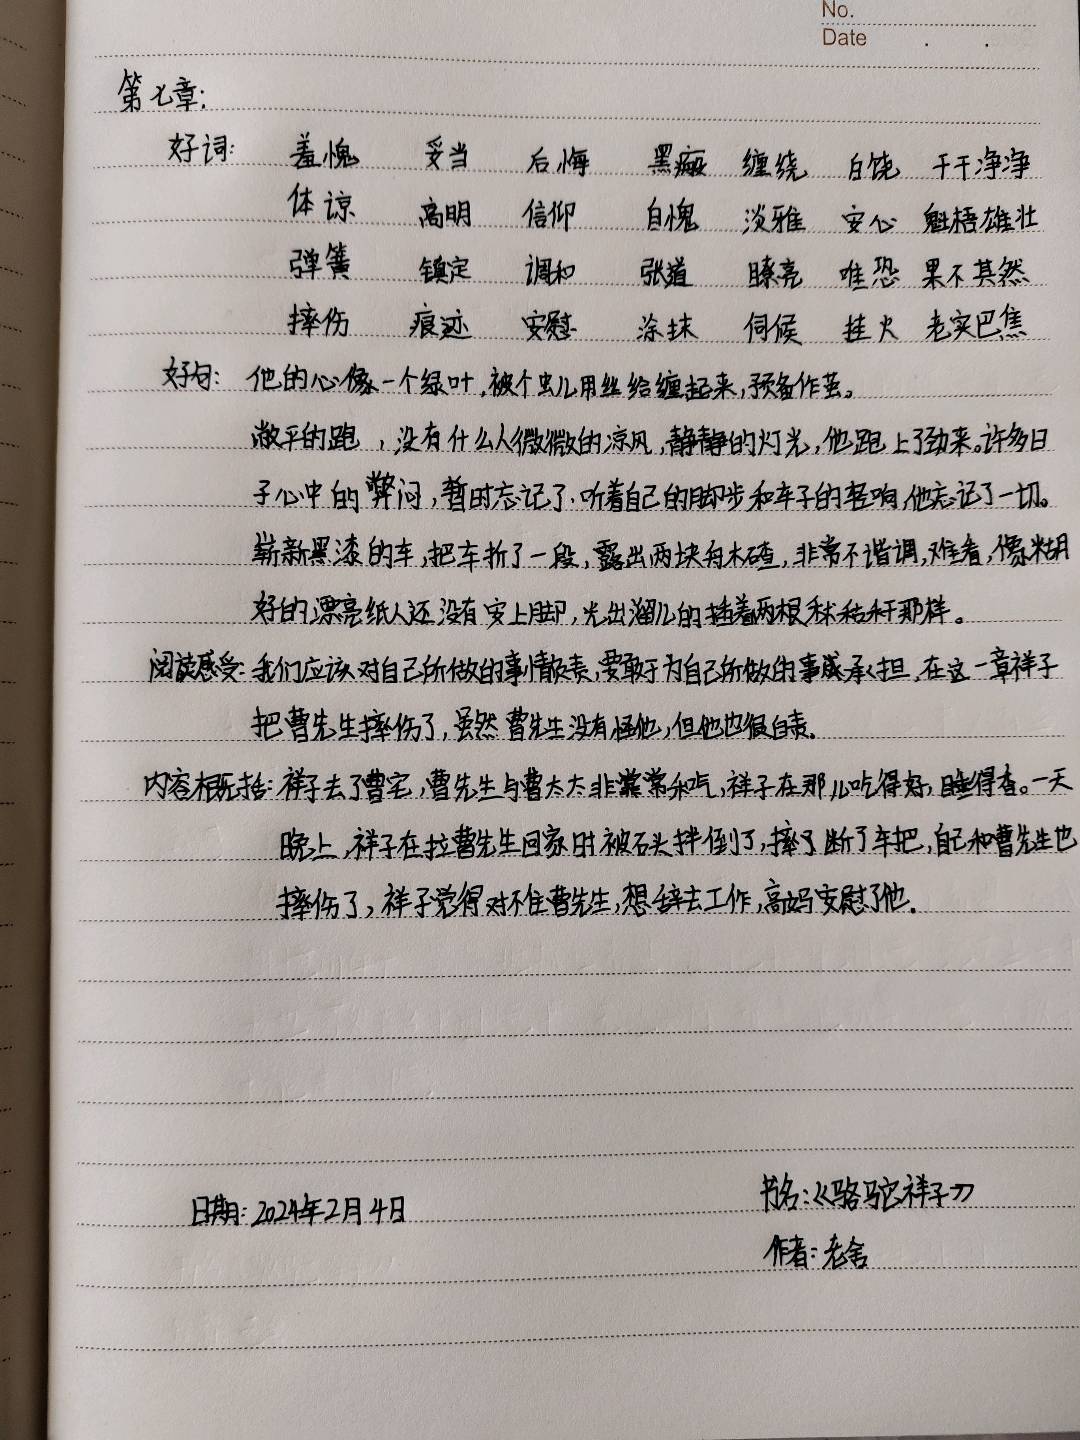 No.
Date . .
第七章:
好词: 羞愧 妥当 后悔 黑痂 缠绕 白饶 干干净净
体谅 高明 信仰 自愧 淡雅 安心 魁梧雄壮
弹簧 镇定 调和 张道 嘹亮 唯恐 果不其然
摔伤 痕迹 安慰 涂抹 伺候 挂火 老实巴焦
好句: 他的心像一个绿叶,被个虫儿用丝给缠起来,预备作茧。
敞平的跑,没有什么人,微微的凉风,静静的灯光,他跑上了劲来。许多日
子心中的弊闷,暂时忘记了.听着自己的脚步和车子的轻响,他忘记了一切。
崭新黑漆的车,把车折了一段,露出两块白木碴,非常不谐调,难看,像糊
好的漂亮纸人还没有安上脚,光出溜儿的插着两根秫秸杆那样。
阅读感受: 我们应该对自己所做的事情负责,要敢于为自己所做的事感承担,在这一章祥子
把曹先生摔伤了,虽然曹先生没有怪他,但他也很自责.
内容概括: 祥子去了曹宅,曹先生与曹太太非常和气,祥子在那儿吃得好,睡得香。一天
晚上,祥子在拉曹先生回家时被石头拌倒了,摔了断了车把,自己和曹先生也
摔伤了,祥子觉得对不住曹先生,想辞去工作,高妈安慰了他.
日期: 2024年2月4日
书名:《骆驼祥子》
作者: 老舍